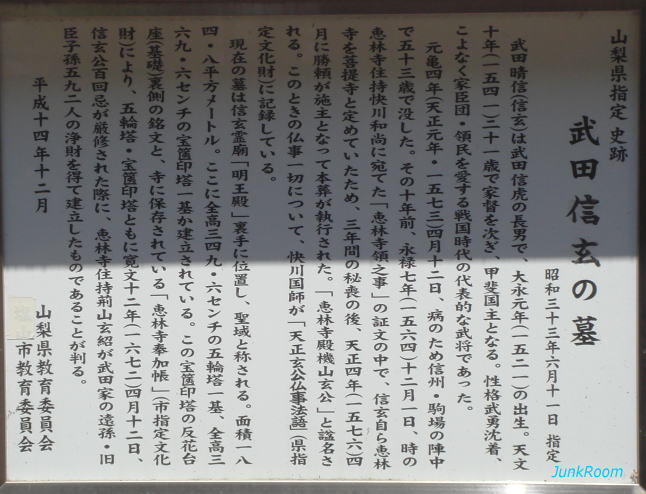 山梨県指定 史跡
武田信玄の墓
昭和三十三年六月十一日 指定
武田晴信(信玄)は武田信虎の長男で、大永元年(一五二一)の出生。天文
十年(一五四一)二十一歳で家督を次ぎ、甲斐国主となる。性格武勇沈着、
こよなく家臣団・領民を愛する戦国時代の代表的な武将であった。
元亀四年(天正元年・一五七三)四月十二日、病のため信州・駒場の陣中
で五十三歳で没した。その十年前、永禄七年(一五六四)十二月一日、時の
恵林寺住持快川和尚に宛てた「恵林寺領之事」の証文の中で、信玄自ら恵林
寺を菩提寺と定めていたため、三年間の秘喪の後、天正四年(一五七六)四
月に勝頼が施主となって本葬が執行された。「恵林寺殿機山玄公」と諡名さ
れる。このときの仏事一切について、快川国師が「天正玄公仏事法語」(県指
定文化財)に記録している。
現在の墓は信玄霊廟「明王殿」裏手に位置し、聖域と称される。面積一八
四・八平方メートル。ここに全高三四九・六センチの五輪塔一基、全高三
六九・六センチの宝篋印塔一基が建立されている。この宝篋印塔の反花台
座(基礎)裏側の銘文と、寺に保存されている「恵林寺奉加帳」(市指定文化
財)により、五輪塔・宝篋印塔ともに寛文十二年(一六七二)四月十二日、
信玄公百回忌が厳修された際に、恵林寺住持荊山玄紹が武田家の遺孫・旧
臣子孫五九二人の浄財を得て建立したものであることが判る。
平成十四年十二月
山梨県教育委員会
市教育委員会
JunkRoom